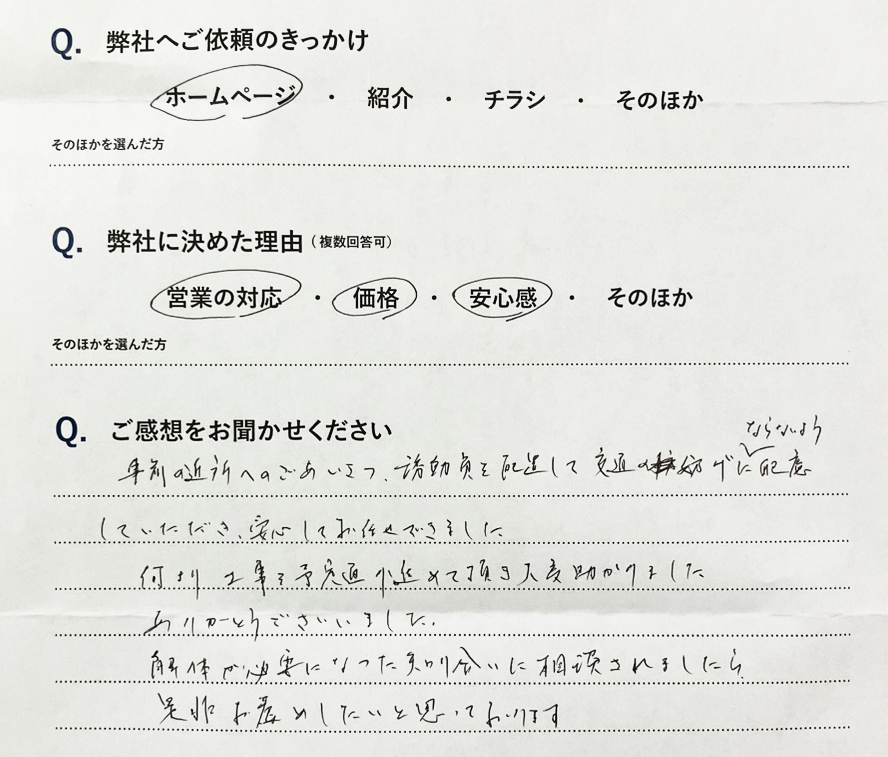 Q. 弊社へご依頼のきっかけ
ホームページ ・ 紹介 ・ チラシ ・ そのほか
そのほかを選んだ方
Q. 弊社に決めた理由(複数回答可)
営業の対応 ・ 価格 ・ 安心感 ・ そのほか
そのほかを選んだ方
Q. ご感想をお聞かせください
ならないよう
事前の近所へのごあいさつ、誘動員を配送して 交通の妨げに配慮
していただき、安心してお任せできました
何より工事を予定通り進めて頂き大変助かりました
ありがとうございました。
解体が必要になった知り合いに相談されましたら
是非お薦めしたいと思っております